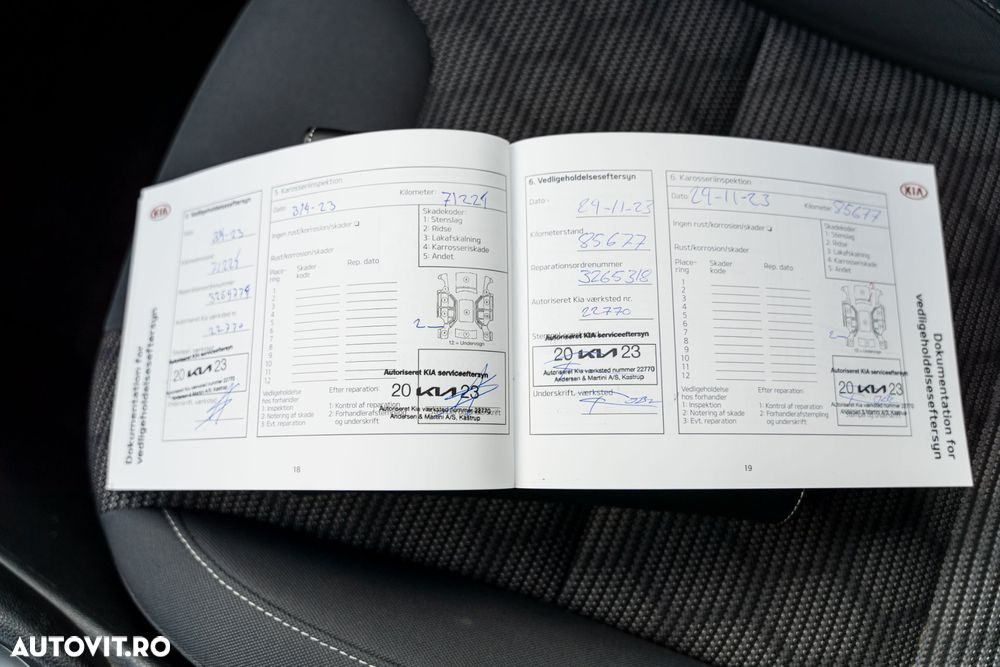 KIA
5. Vedligeholdelseseftersyn
Dato
3/4-23
Kilometerstand
71224
Reparationsordrenummer
Autoriseret Kia værksted nr.
22770
Autoriseret KIA serviceeftersyn
20 KIA 23
Autoriseret Kia værksted nummer 22770
Andersen & Martini A/S, Kastrup
Dokumentation for
vedligeholdelseseftersyn
5. Karosseriinspektion
Dato 3/4-23 Kilometer: 71224
Ingen rust/korrosion/skader
Rust/korrosion/skader
Skadekoder:
1: Stenslag
2: Ridse
3: Lakafskalning
4: Karrosseriskade
5: Andet
Place-
ring
Skader
kode
Rep. dato
1
2
3
4
5
6
7
8
9
10
11
12
2
12 = Undervogn
Vedligeholdelse
hos forhandler
1: Inspektion
2: Notering af skade
3: Evt. reparation
Efter reparation:
1: Kontrol af reparation
2: Forhandlerafstempling
og underskrift
Autoriseret KIA serviceeftersyn
20 KIA 23
Autoriseret Kia værksted nummer 22770
Andersen & Martini A/S, Kastrup
18
6. Vedligeholdelseseftersyn
Dato
29-11-23
Kilometerstand
85677
Reparationsordrenummer
3265318
Autoriseret Kia værksted nr.
22770
Autoriseret KIA serviceeftersyn
20 KIA 23
Autoriseret Kia værksted nummer 22770
Andersen & Martini A/S, Kastrup
Underskrift, værksted
6. Karosseriinspektion
Dato 29-11-23 Kilometer 85677
Ingen rust/korrosion/skader
Rust/korrosion/skader
Skadekoder:
1: Stenslag
2: Ridse
3: Lakafskalning
4: Karrosseriskade
5: Andet
Place-
ring
Skader
kode
Rep. dato
1
2
3
4
5
6
7
8
9
10
11
12
2
12 = Undervogn
Vedligeholdelse
hos forhandler
1: Inspektion
2: Notering af skade
3: Evt. reparation
Efter reparation:
1: Kontrol af reparation
2: Forhandlerafstempling
og underskrift
Autoriseret KIA serviceeftersyn
20 KIA 23
Autoriseret Kia værksted nummer 22770
Andersen & Martini A/S, Kastrup
19
KIA
Dokumentation for
vedligeholdelseseftersyn
AUTOVIT.RO